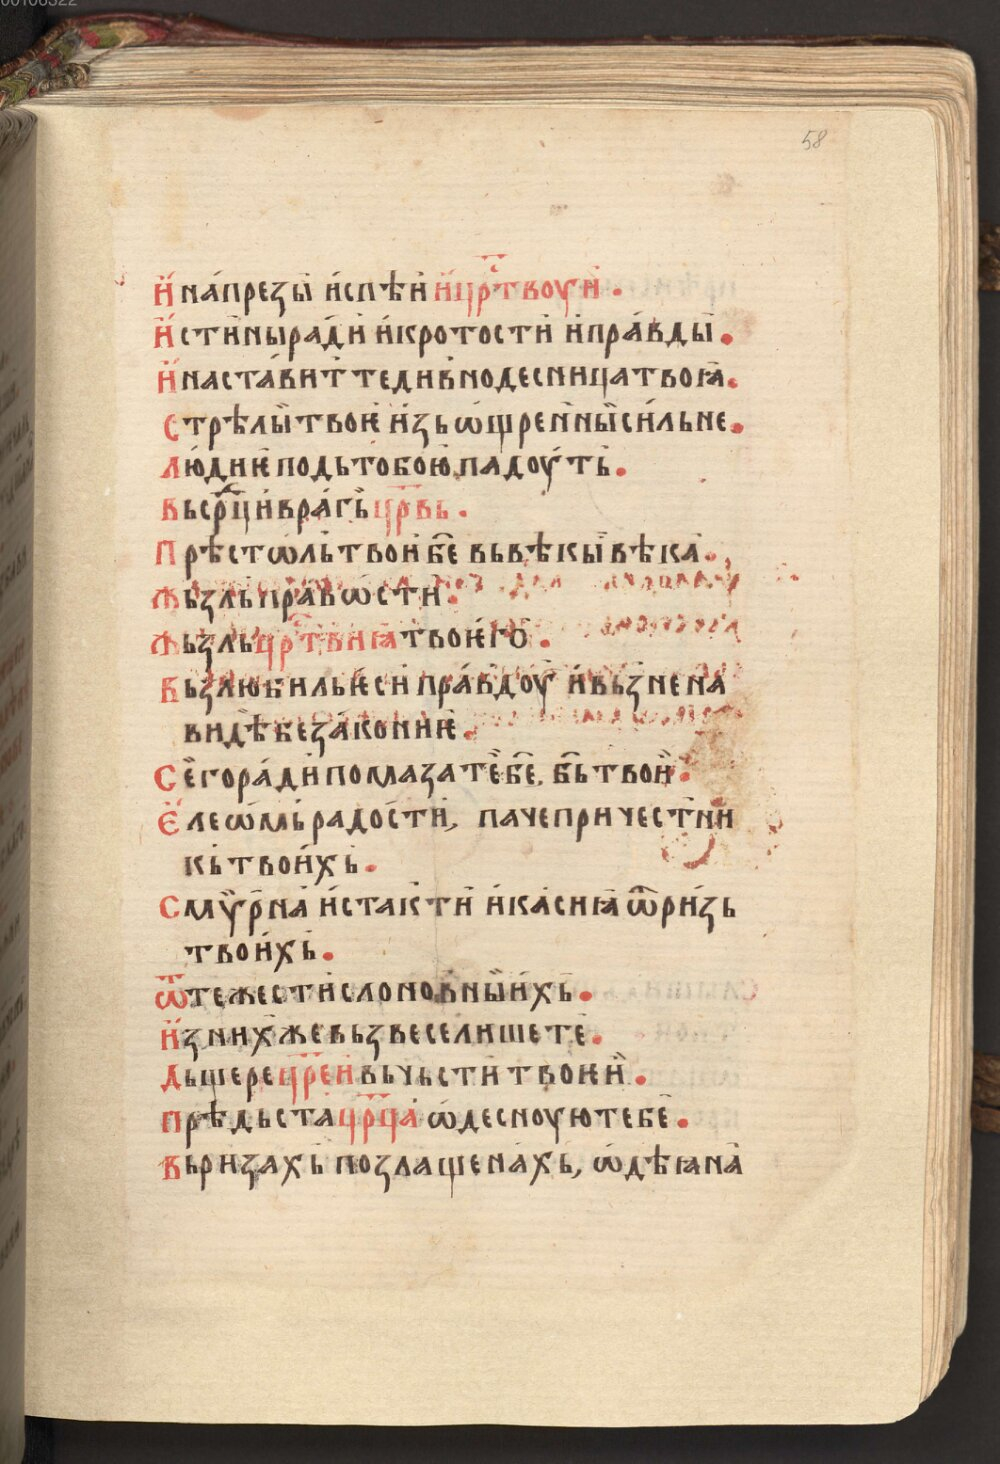 00106322
58
И҆ на́прѣзы и҆спѣи и҆ цр҃твоуи .
И҆стины ра́ди и҆ кротости и҆ пра́вды .
И҆ наста́вит те дивно десница твоꙗ .
Стрѣлы твоѥ и҆зьѡ҆щренны си́льне .
Лю́диѥ подь тобою падоу́ть .
Вь ср҃ци вра́гь цр҃вь .
Прѣстѡль твои бе҃ вь вѣкы вѣка .
Жьзль пра́вѡсти .
Жьзль цр҃твиꙗ твоѥго .
Вьзлюбиль ѥси пра́вдоу и҆ вьзнена
видѣ беза́кониѥ .
Сего ра́ди помаза те бе҃, бь҃ твои .
Елеѡмь радости, паче причестни
кь твои́хь .
Смѵрна и҆ стакти и҆ касиꙗ ѿ ри́зь
твои́хь .
Ѿ тежести слоновны́ихь .
И҆з нихже вьзвеселише те .
Дьщере цр҃еи вь чьсти твоѥи .
Прѣдьста цр҃ца ѡ҆десноую тебе .
Вь ризахь позлащенахь, ѡ҆дѣꙗна